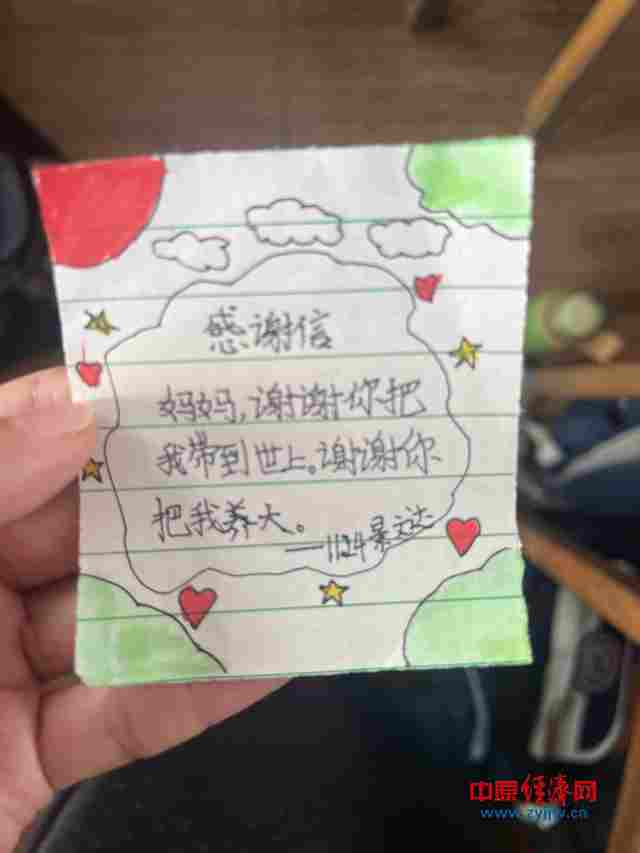 感谢信
妈妈,谢谢你把
我带到世上。谢谢你
把我养大。
——1124景达
中原经济网
www.zyjjw.cn